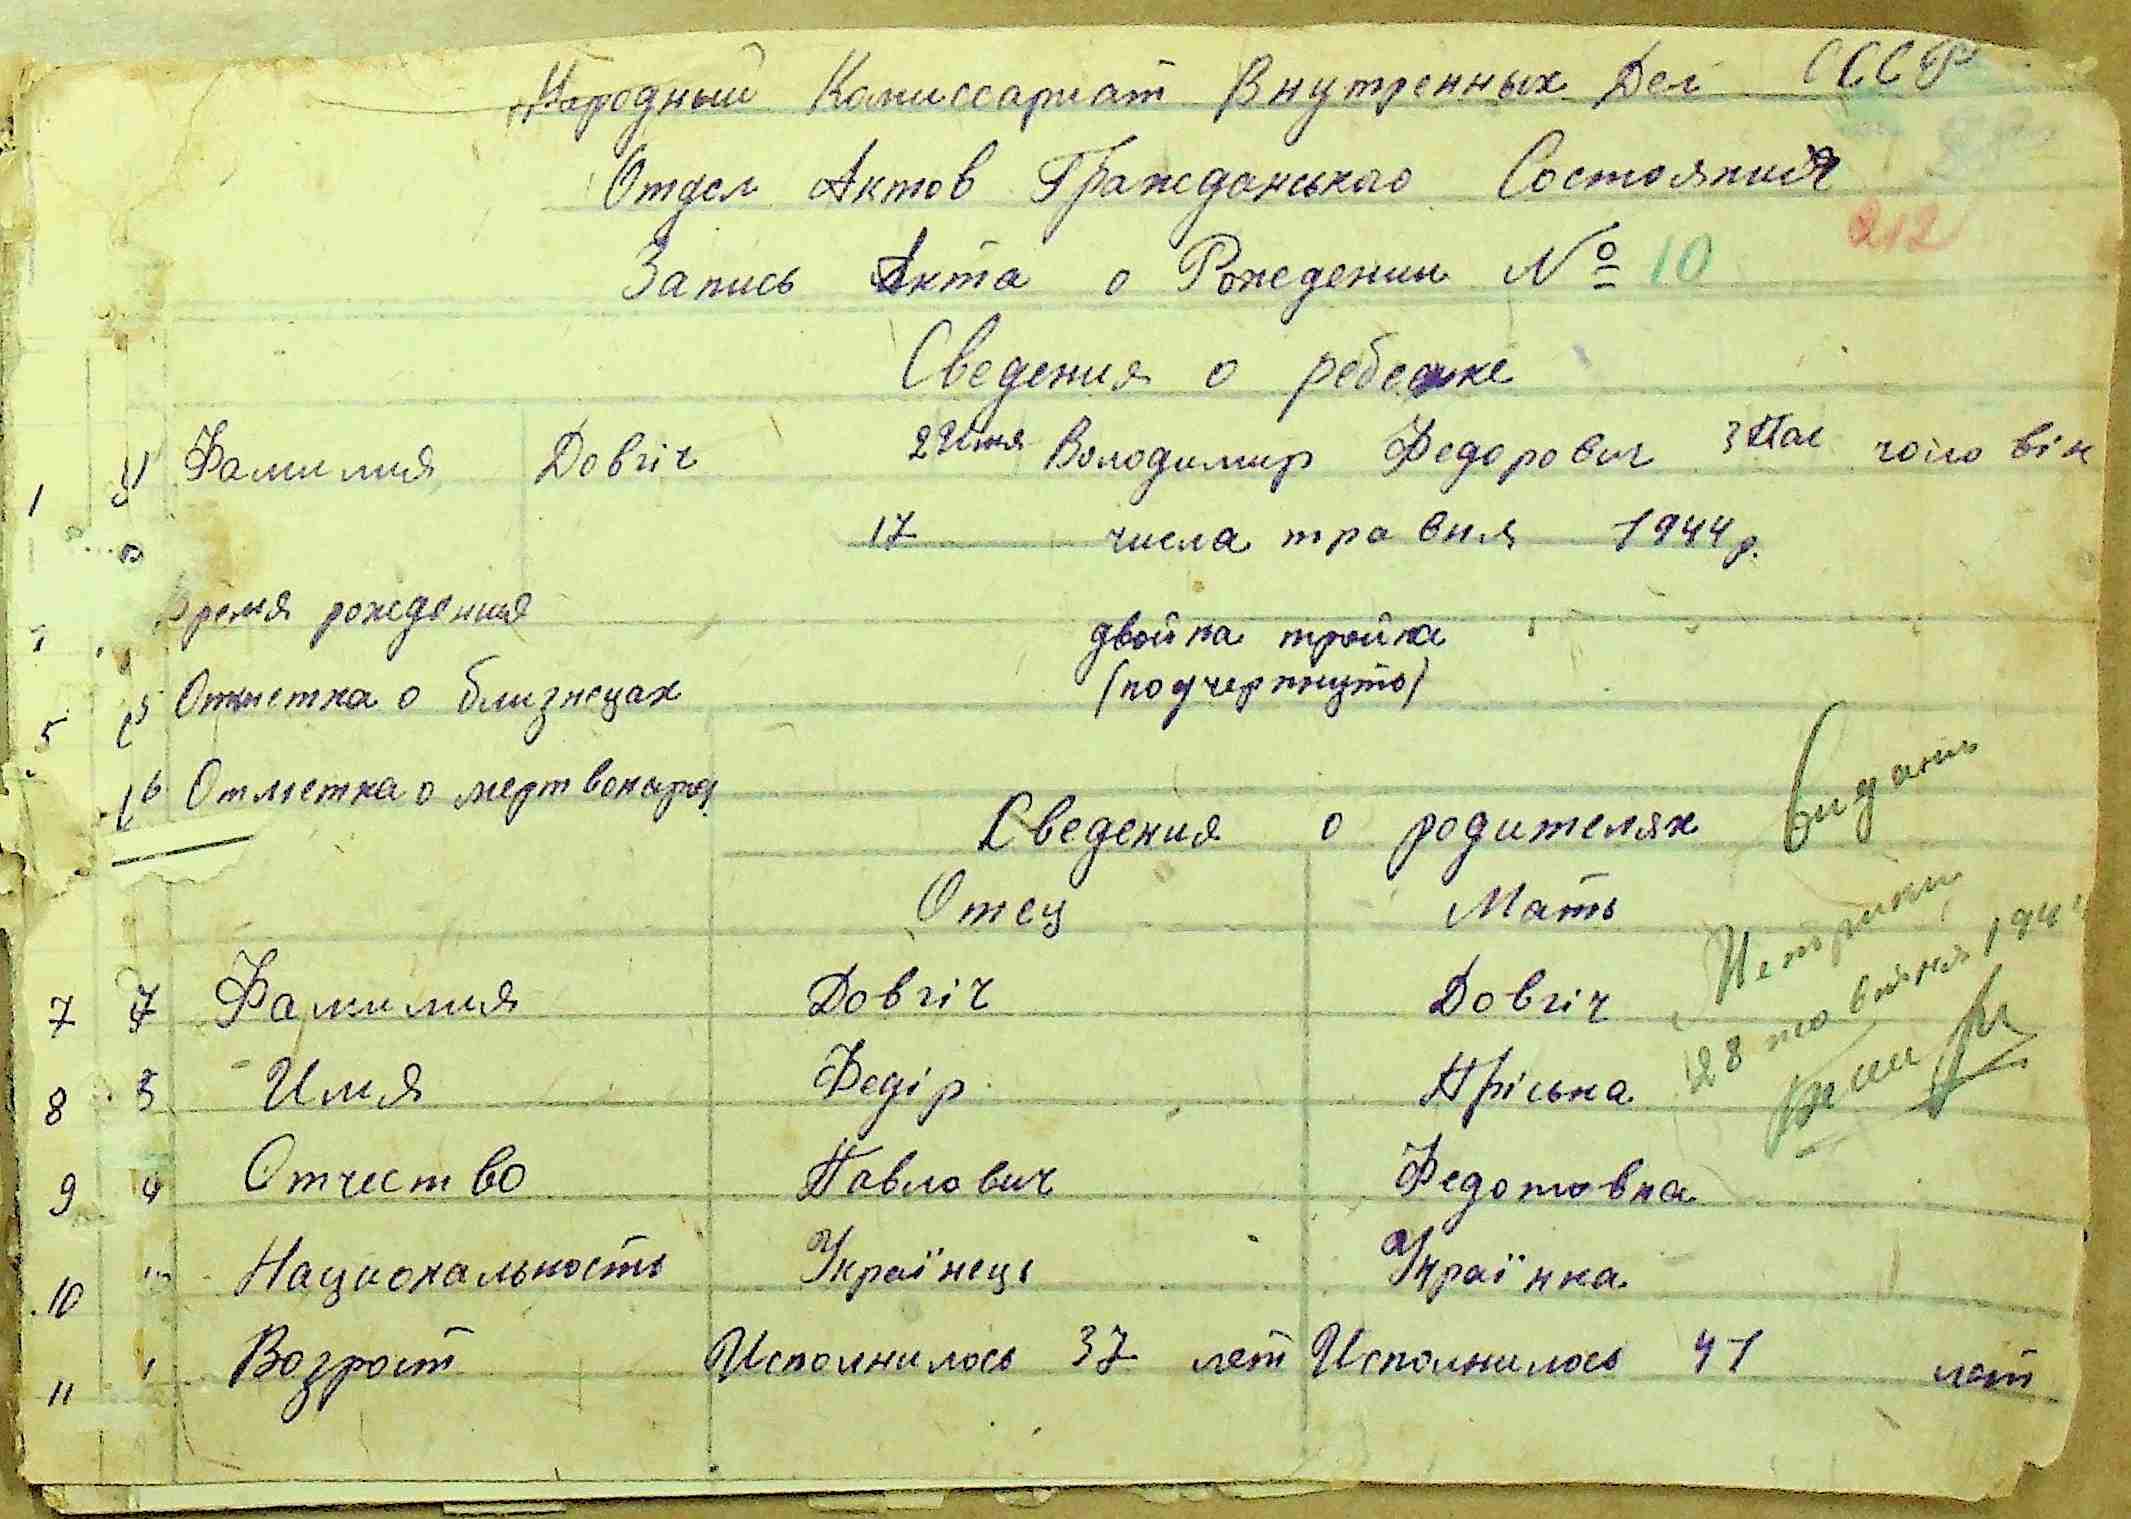 Народный Комиссариат Внутренных Дел СССР
Отдел Актов Гражданського Состояния
212
Запись Акта о Рождении № 10
Сведения о ребенке
1 Фамилия Довгіч 2 Имя Володимир Федорович 3 Пол чоло вік
17 числа травня 1944 р.
Время рождения
двойна тройна
(подчеркнуто)
5 5 Отметка о близнецах
6 Отметка о мертворожд.
Сведения о родителях
видани
Отец Мать
28 травня 1944
7 7 Фамилия Довгіч Довгіч
8 Имя Федір Пріська
9 Отчество Павлович Федотовна
10 Национальность Українець Українка
11 Возраст Исполнилось 37 лет Исполнилось 41 лет